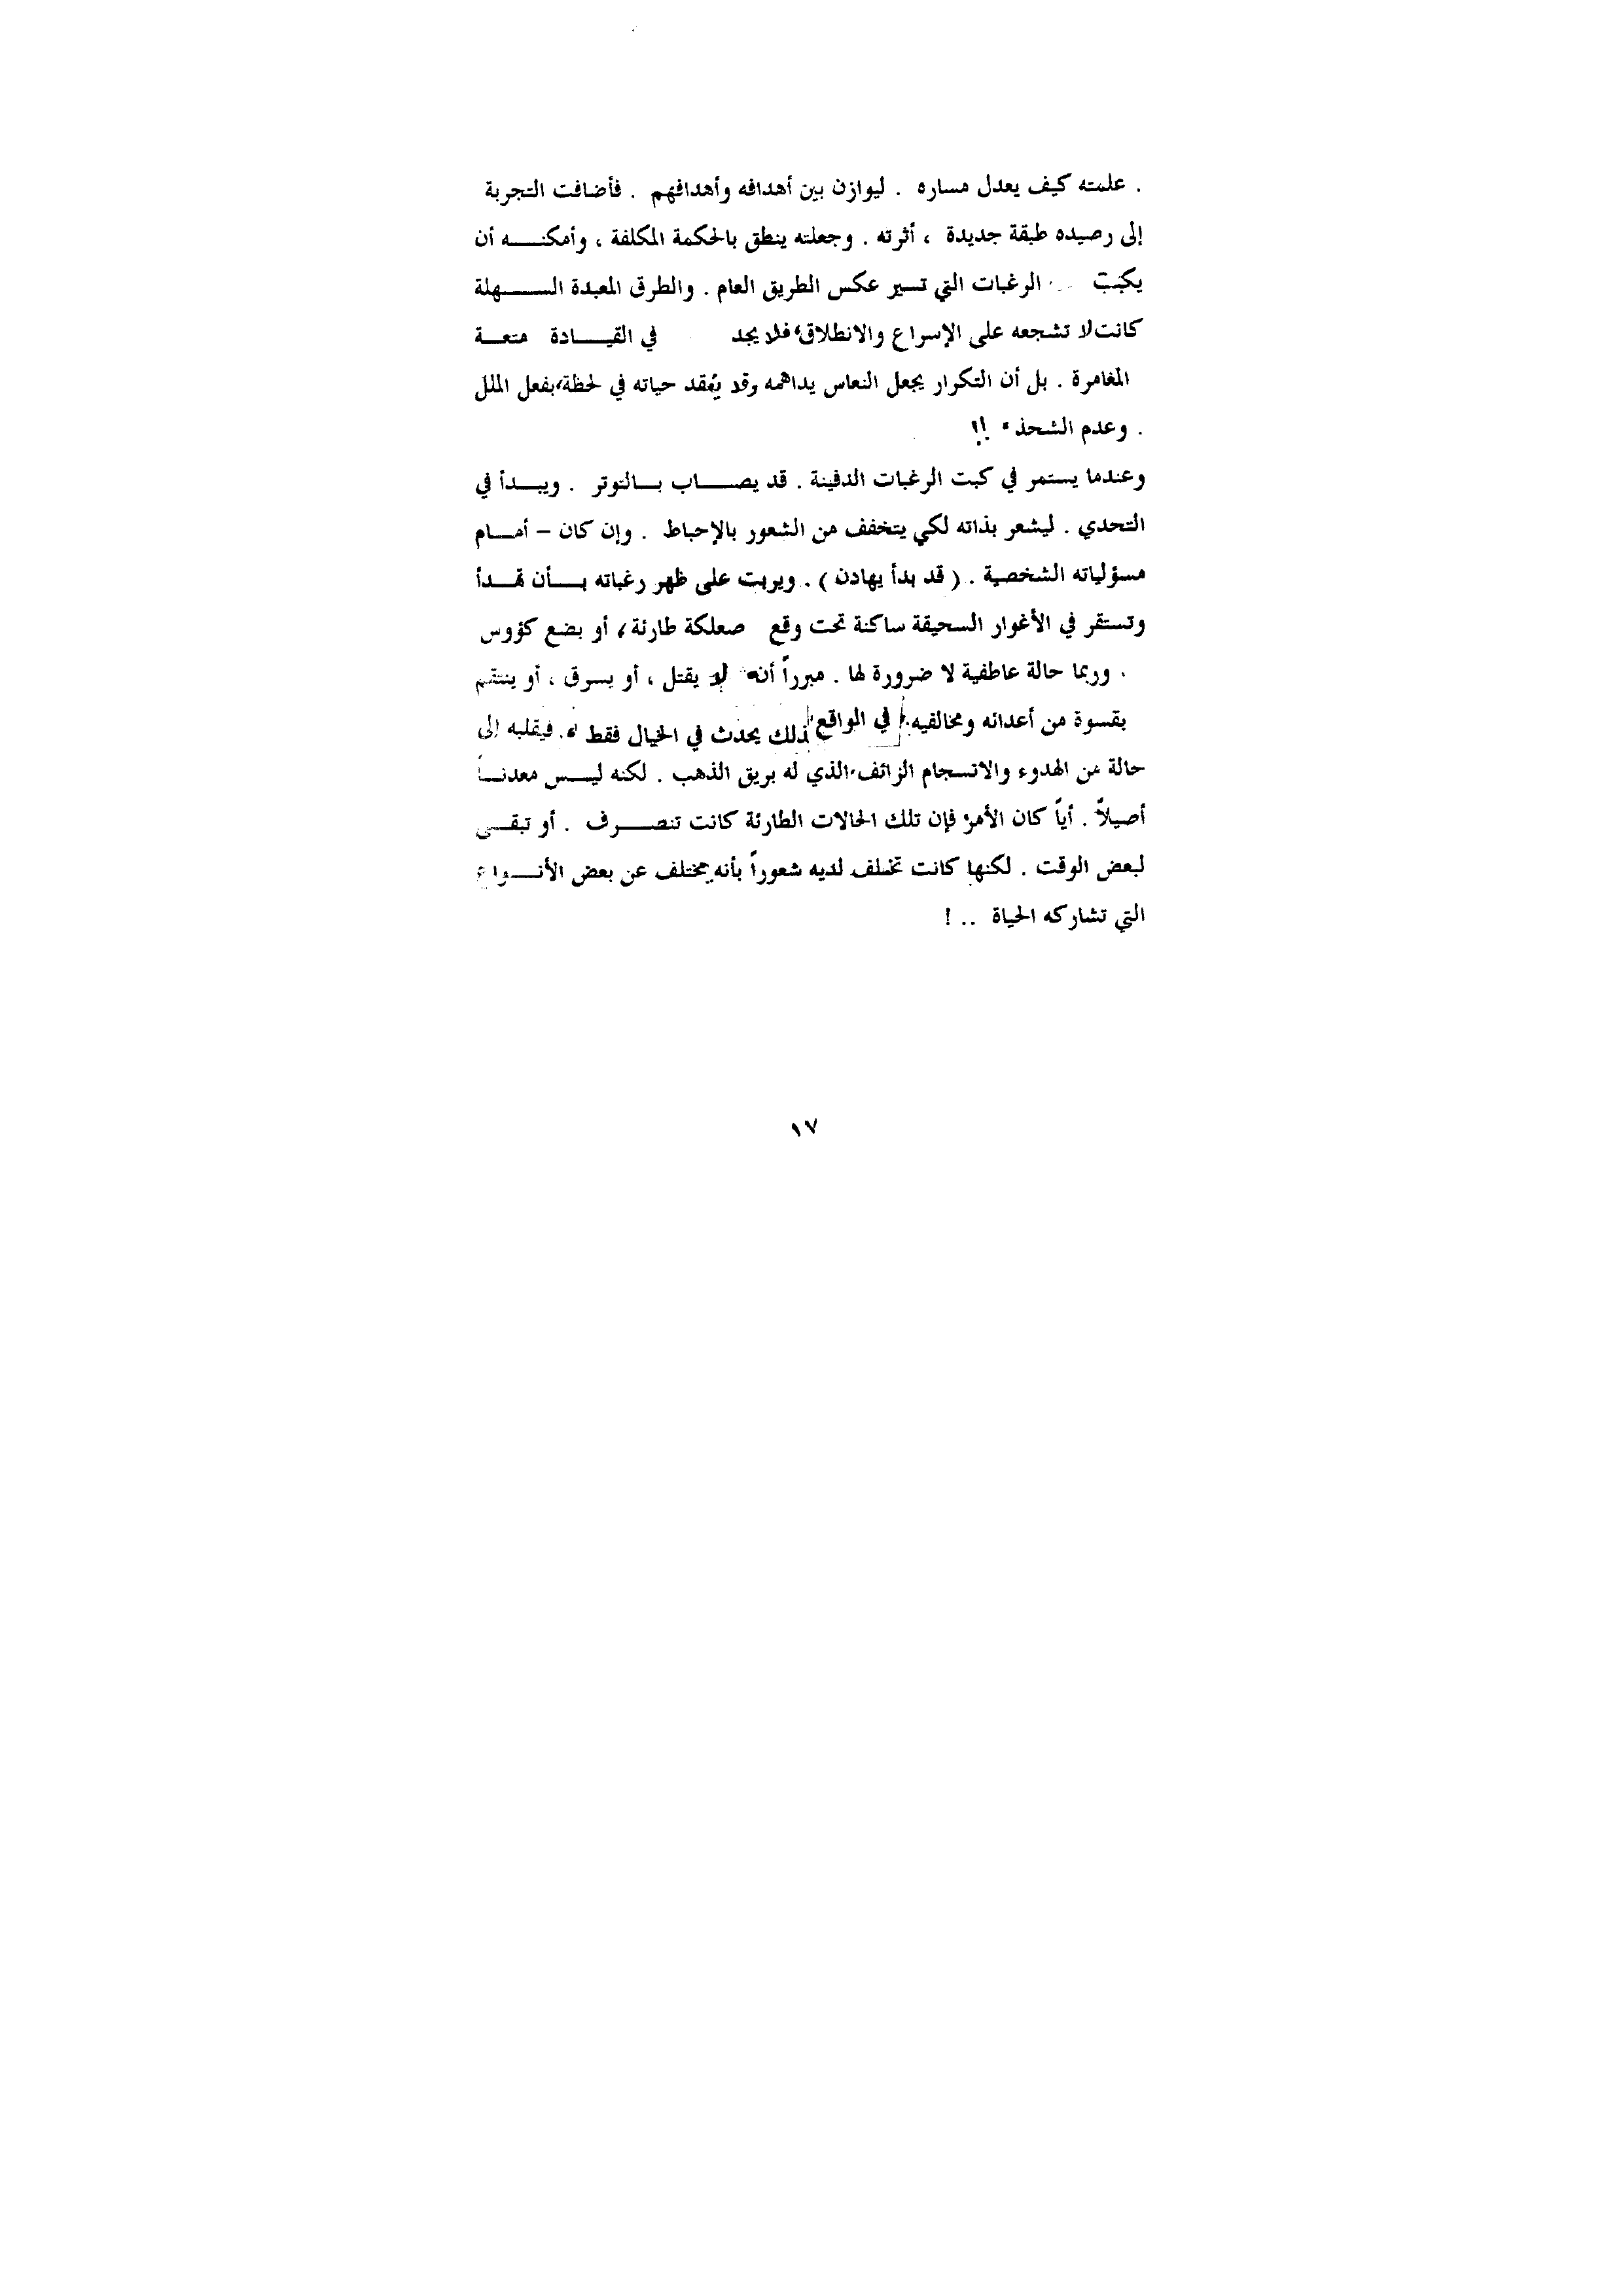 . علمته كيف يعدل مساره . ليوازن بين أهدافه وأهدافهم . فأضافت التجربة
إلى رصيده طبقة جديدة ، أثرته . وجعلته ينطق بالحكمة المكلفة ، وأمكنـــه أن
يكبت الرغبات التي تسير عكس الطريق العام . والطرق المعبدة الســـهلة
كانت لا تشجعه على الإسراع والانطلاق، فلا يجد في القيـــادة متعـــة
المغامرة . بل أن التكرار يجعل النعاس يداهمه وقد يفقد حياته في لحظة، بفعل الملل
. وعدم الشحذ !!
وعندما يستمر في كبت الرغبات الدفينة . قد يصـــاب بـــالتوتر . ويبـــدأ في
التحدي . ليشعر بذاته لكي يتخفف من الشعور بالإحباط . وإن كان – أمـــام
مسؤلياته الشخصية . ( قد بدأ يهادن ) . ويربت على ظهر رغباته بـــأن تهـــدأ
وتستقر في الأغوار السحيقة ساكنة تحت وقع صعلكة طارئة ، أو بضع كؤوس
. وربما حالة عاطفية لا ضرورة لها . مبرراً أنه لا يقتل ، أو يسرق ، أو ينتقم
بقسوة من أعدائه ومخالفيه . في الواقع ذلك يحدث في الخيال فقط . فيقلبه إلى
حالة من الهدوء والانسجام الزائف، الذي له بريق الذهب . لكنه ليـــس معدنـــاً
أصيلاً . أياً كان الأمر فإن تلك الحالات الطارئة كانت تنصـــرف . أو تبقـــى
لبعض الوقت . لكنها كانت تخلف لديه شعوراً بأنه مختلف عن بعض الأنـــواع
التي تشاركه الحياة .. !
١٧